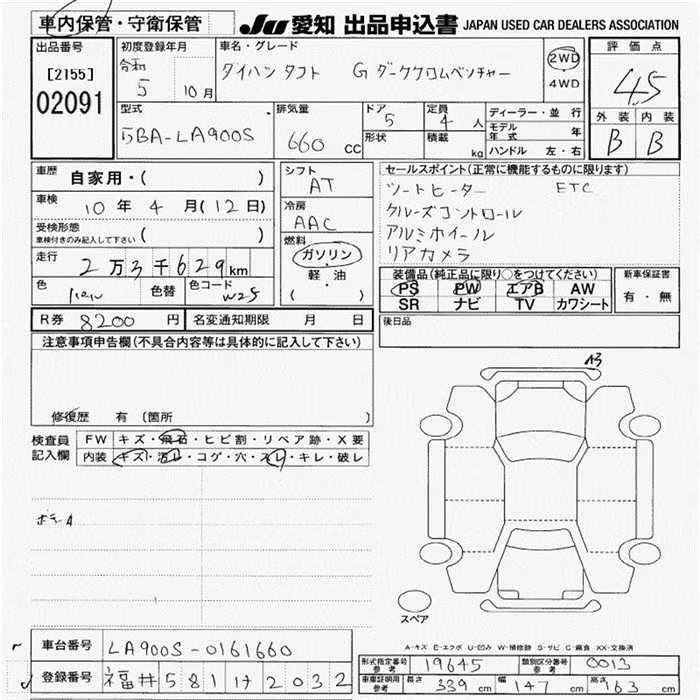 車内保管・守衛保管
JU 愛知 出品申込書 JAPAN USED CAR DEALERS ASSOCIATION
出品番号 初度登録年月 車名・グレード 評価点
[2155] 令和 2WD
02091 5 10月 ダイハツ タフト G ダーククロムベンチャー 4WD 4.5
型式 排気量 ドア 定員 ディーラー・並行 外装 内装
5BA-LA900S 660 cc 5 4人 モデル年式 年 B B
形状 積載 kg ハンドル 左・右
車歴 自家用・( ) シフト AT セールスポイント(正常に機能するものに限ります)
車検 10年4月(12日) 冷房 AAC シートヒーター ETC
受検形態 ( ) クルーズコントロール
車検付きのみ記入して下さい 燃料 アルミホイール
走行 2万3千629km ガソリン リアカメラ
軽・油 装備品(純正品に限り○をつけてください) 新車保証書
色 色替 色コード W25 ( ) PS PW エアB AW 有・無
SR ナビ TV カワシート
R券 8200円 名変通知期限 月 日 後日品
注意事項申告欄(不具合内容等は具体的に記入して下さい)
A3
修復歴 有 (箇所 )
検査員 FW キズ・飛石・ヒビ割・リペア跡・X要
記入欄 内装 キズ・汚レ・コゲ・穴・スレ・キレ・破レ
スペア
A-キズ E-エクボ U-凹み W-補修跡 S-サビ C-腐食 XX-交換済
車台番号 LA900S-0161660
形式指定番号参考 19645 類別区分番号参考 0013
登録番号 福井581け2032
車庫証明用参考 長さ 339cm 幅 147cm 高さ 163cm